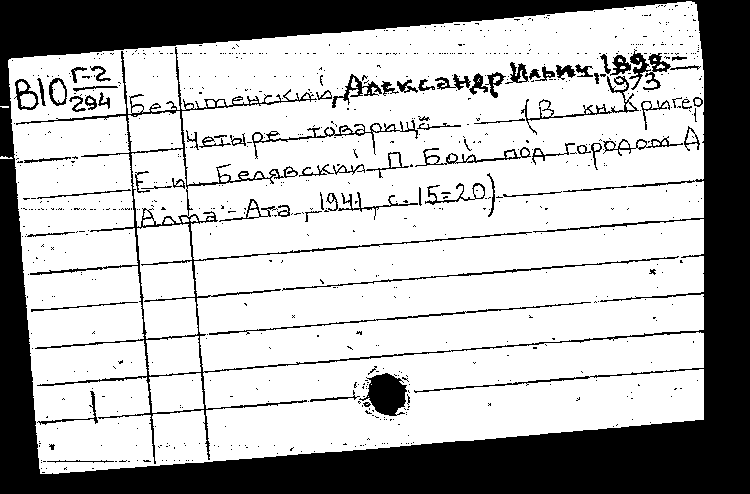 В10 Г-2
294
Безыменский, Александр Ильич, 1898-
1973
Четыре товарища. (В кн. Кригер
Е. и Белявский, П. Бой под городом А.
Алма-Ата, 1941, с. 15-20).